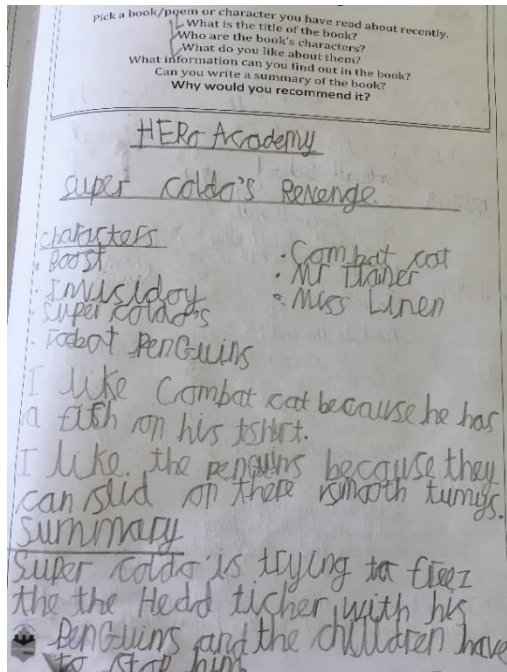 Pick a book/poem or character you have read about recently.
What is the title of the book?
Who are the book's characters?
What do you like about them?
What information can you find out in the book?
Can you write a summary of the book?
Why would you recommend it?
HERo Academy
super coldo's Revenge
characters
Boost
Invisiboy
super coldo's
robot PenGuins
Combat cat
Mr Trainer
Miss Linen
I like Combat cat because he has
a fish on his tshirt.
I like. the penguins because they
can slid on there smooth tumys.
Summary
Super coldo is trying to freez
the the Hedd ticher with his
PenGuins and the children have
to stop him